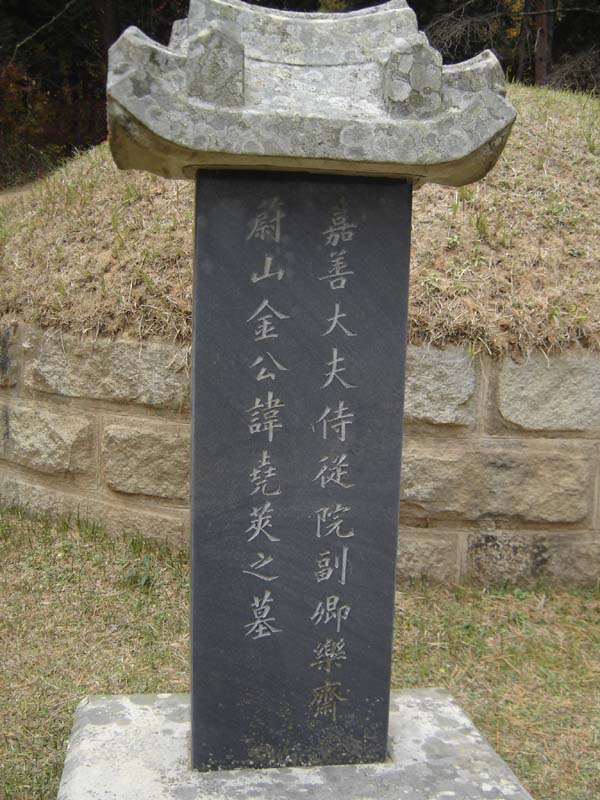 嘉善大夫侍從院副卿樂齋
蔚山金公諱堯莢之墓